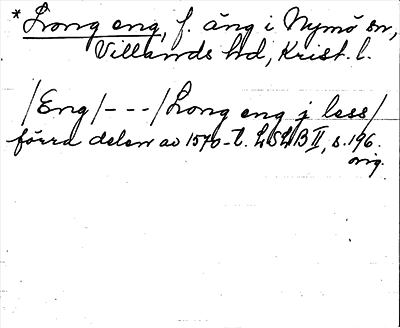 *Long eng, f. äng i Nymö sn,
Villands hd, Krist. l.
/Eng/---/Long eng j less/
förra delen av 1570-t. LSLB II, s. 196.
orig.